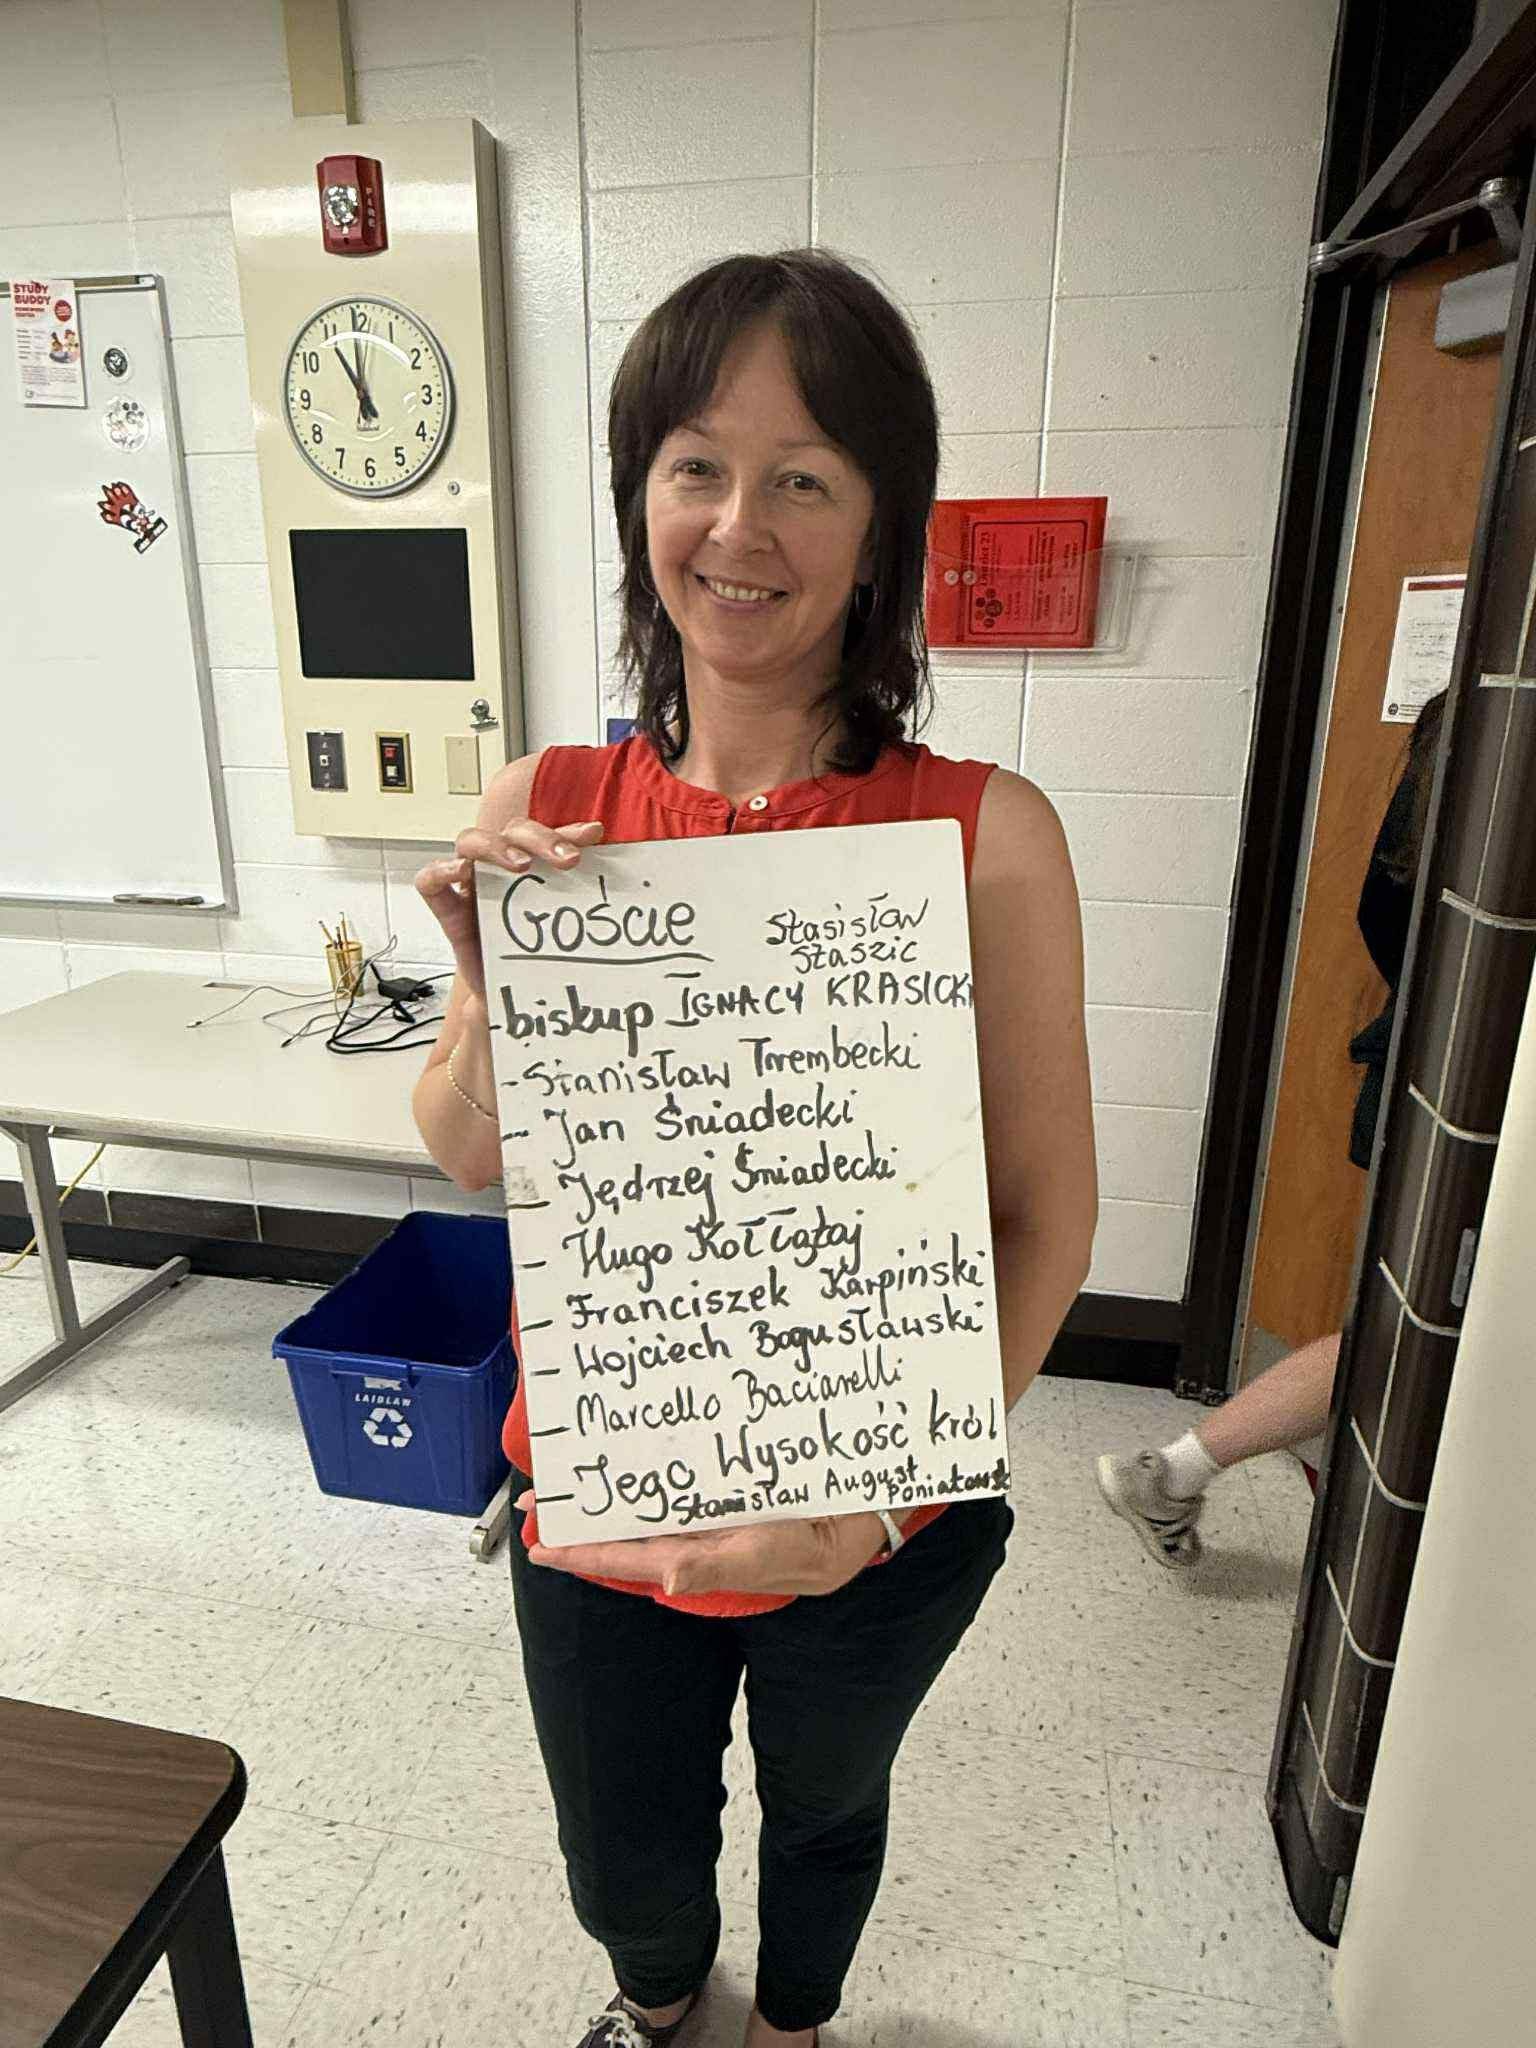 FIRE
STUDY
BUDDY
HOMEWORK
CENTER
11 12
10 2
9 3
8 4
7 6 5
District 23
Goście
Stasisław
Staszic
- biskup IGNACY KRASICKI
- Stanisław Trembecki
- Jan Śniadecki
- Jędrzej Śniadecki
- Hugo Kołłątaj
- Franciszek Karpiński
- Wojciech Bogusławski
- Marcello Baciarelli
- Jego Wysokość król
Stanisław August
Poniatowsk
LAIDLAW